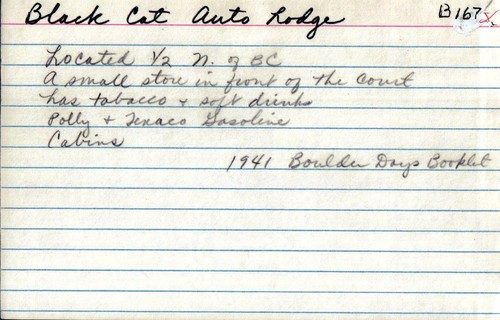 Black Cat Auto Lodge B167
Located 1/2 N. of BC
A small store in front of the Court
has tobacco + soft drinks
Polly + Texaco Gasoline
Cabins
1941 Boulder Days Booklet